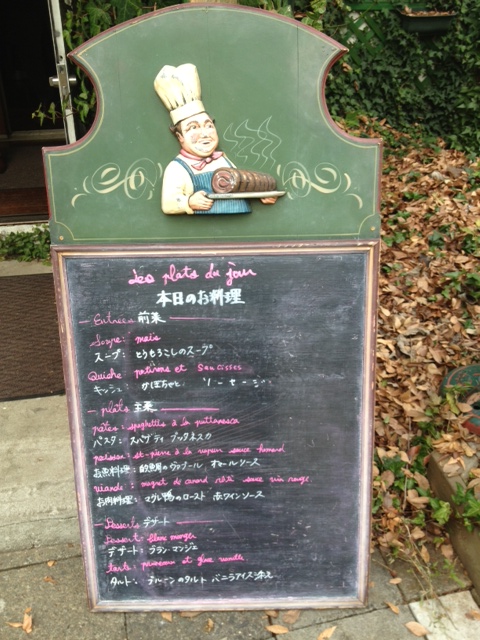 Les plats du jour
本日のお料理
Entrées 前菜
Soupe: maïs
スープ: とうもろこしのスープ
Quiche potirons et Saucisses
キッシュ かぼちゃと ソーセージ
plats 主菜
pâtes: spaghettis à la puttanesca
パスタ: スパゲティ プッタネスカ
poisson: st-pierre à la vapeur sauce homard
お魚料理: 的鯛のヴァプール オマールソース
viande: magret de canard rôti sauce vin rouge
お肉料理: マグレ鴨のロースト 赤ワインソース
Desserts デザート
Dessert: blanc manger
デザート: ブラン・マンジェ
Tarte: pruneau et glace vanille
タルト: プルーンのタルト バニラアイス添え